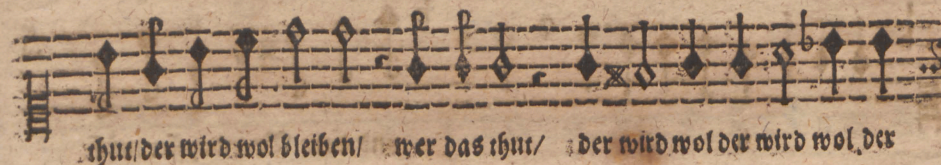 thut/der wird wol bleiben/ wer das thut/ der wird wol der wird wol der